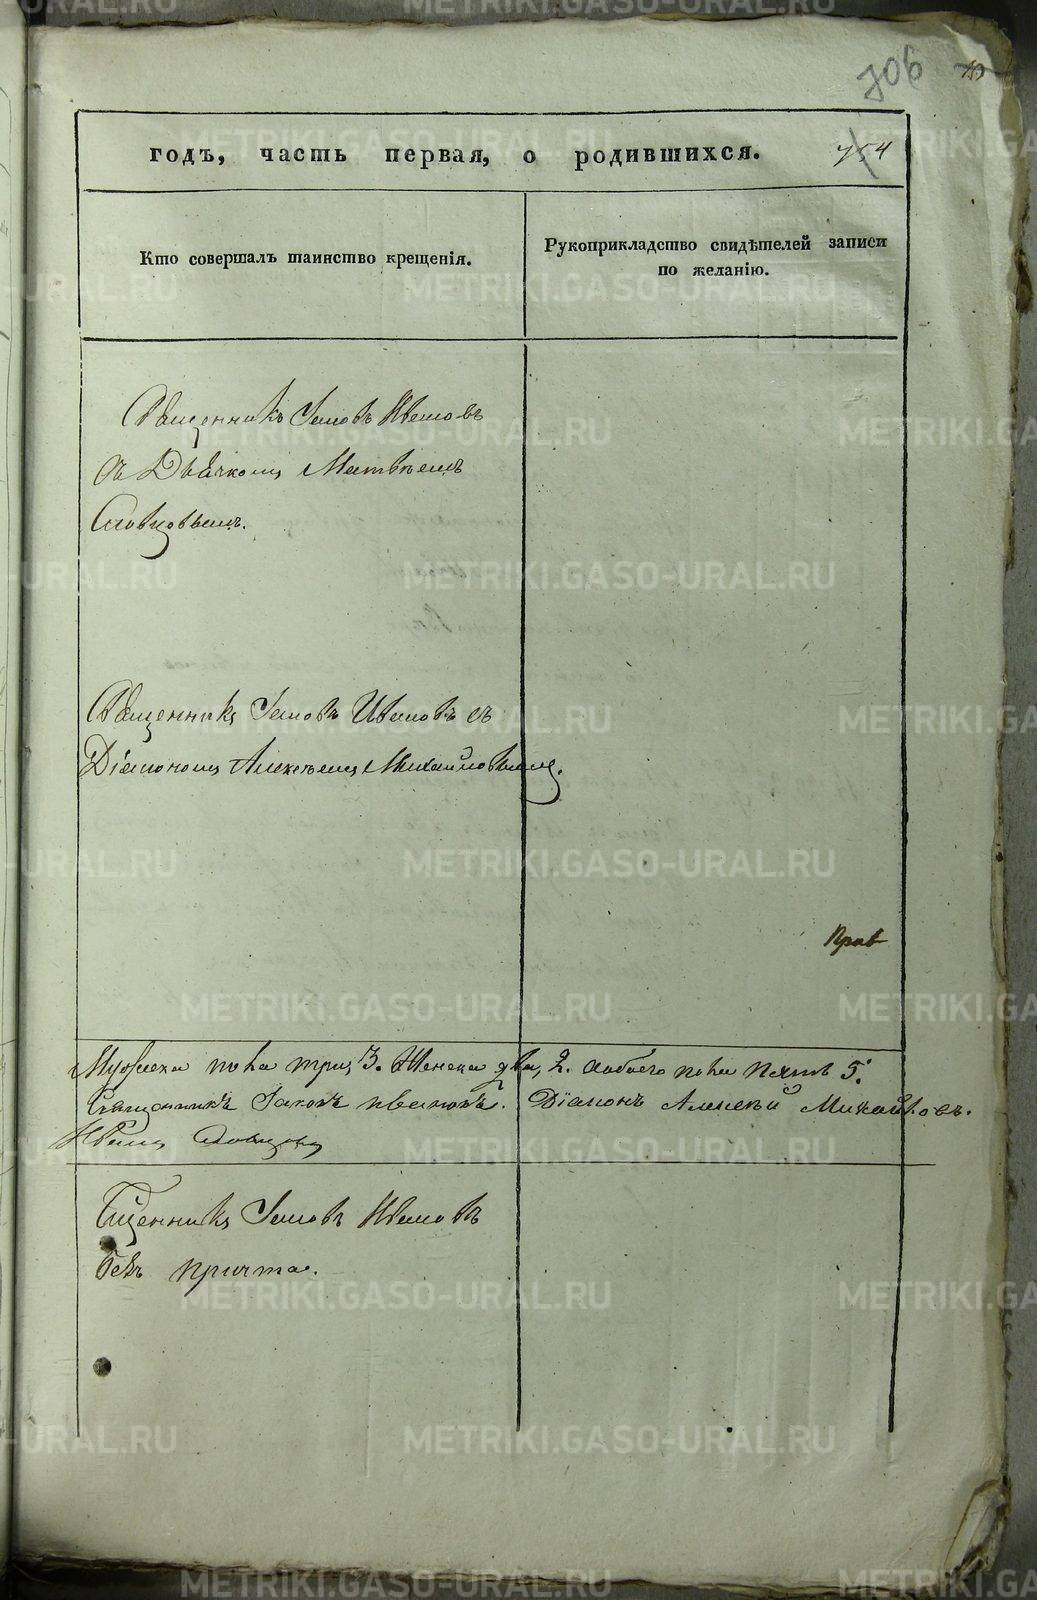 706
754
годъ, часть первая, о родившихся.
Кто совершалъ таинство крещенія.
Рукоприкладство свидѣтелей записи
по желанію.
Священникъ Іаковъ Ивановъ
съ Дьячкомъ Матвѣемъ
Словцовымъ.
Священникъ Іаковъ Ивановъ съ
Діакономъ Алексѣемъ Михайловымъ.
Мужеска пола три, 3. Женска два, 2. обоего пола пять 5.
Священникъ Іаковъ Ивановъ. Діаконъ Алексѣй Михайловъ.
Словцовъ
Сщенникъ Іаковъ Ивановъ
безъ причта.
METRIKI.GASO-URAL.RU